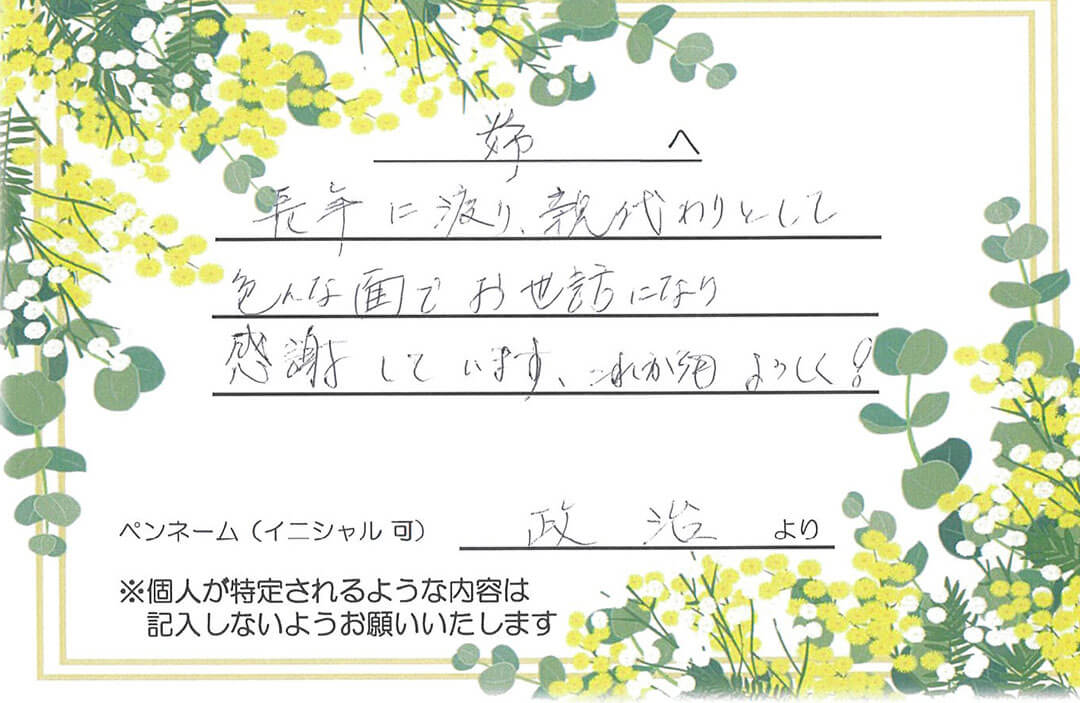 姉 へ
長年に渡り、親代わりとして
色んな面でお世話になり
感謝しています、これからも よろしく!
ペンネーム(イニシャル 可) 政治 より
※個人が特定されるような内容は
記入しないようお願いいたします